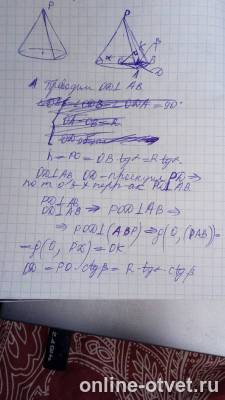 P
P
A
B
D
1 Проводим OD⊥AB
= 90°
OA=OB=R
h = PO = OB·tgα = R·tgα
OD⊥AB, OD - проекция PD ⇒
по т. о 3х перп-ах PD⊥AB
PD⊥AB
OD⊥AB ⇒ POD⊥AB ⇒
⇒ POD⊥(ABP) ⇒ ρ(O,(PAB))=
=ρ(O, PD)=OK
OD = PO·ctgβ = R·tgα·ctgβ
online-otvet.ru